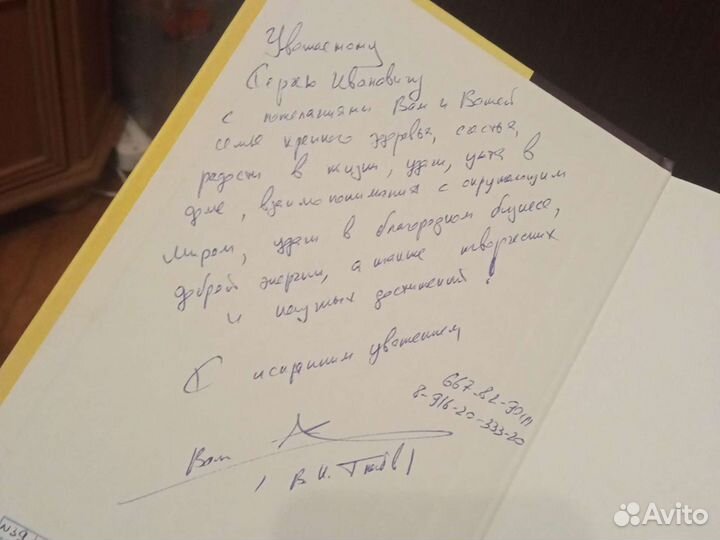 Уважаемому
Сергею Ивановичу
с пожеланиями Вам и Вашей
семье крепкого здоровья, счастья,
радости в жизни, удачи, уюта в
доме, взаимопонимания с окружающим
миром, удачи в благородном бизнесе,
доброй энергии, а также творческих
и научных достижений!
С искренним уважением
667-82-90
8-916-20-333-20
Ваш
В. И.
N39
Avito